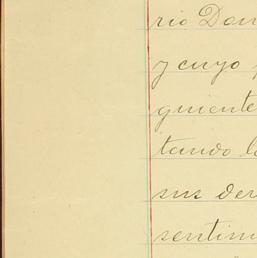 rio Dom
y cuyo
guiente
tando l
sus der
sentim